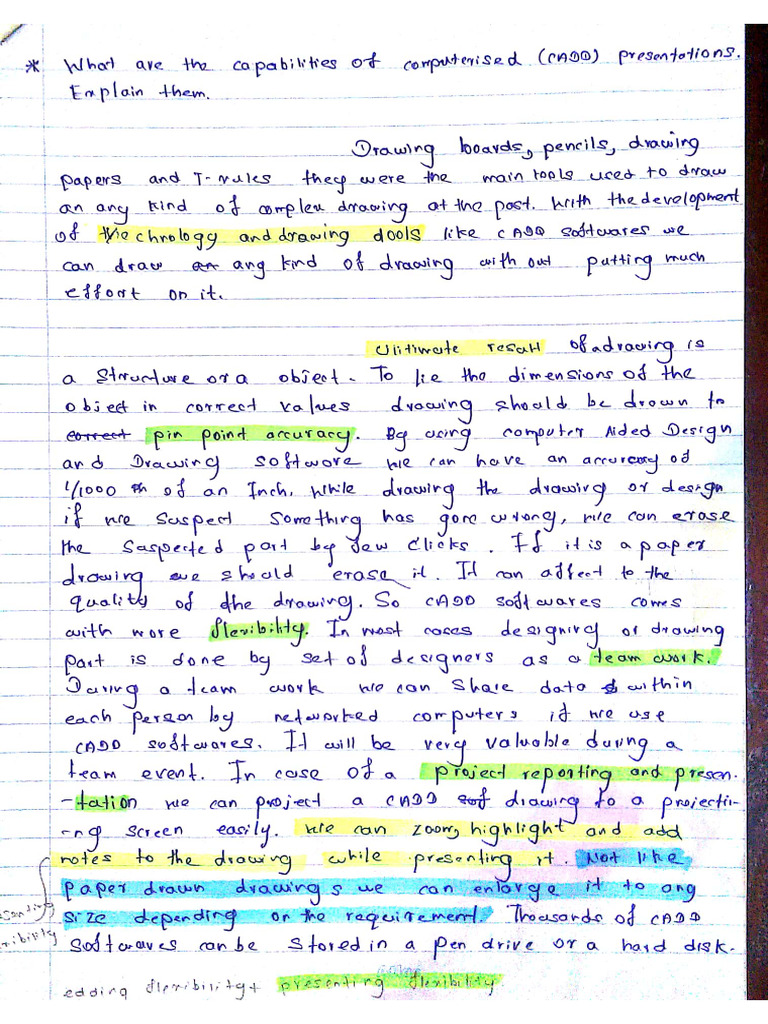 * What are the capabilities of computerised (CADD) presentations.
Explain them.
Drawing boards, pencils, drawing
papers and T-rules they were the main tools used to draw
an any kind of complex drawing at the past. With the development
of technology and drawing dools like CADD softwares we
can draw an any kind of drawing with out putting much
effort on it.
Ulitimate result of a drawing is
a Structure or a object. To lie the dimensions of the
object in correct values drawing should be drown to
correct pin point accuracy. By using computer Aided Design
and Drawing software we can have an accuracy of
1/1000 th of an Inch. While drawing the drawing or design
if we suspect something has gone wrong, we can erase
the suspected part by few clicks. If it is a paper
drawing we should erase it. It can affect to the
quality of the drawing. So CADD softwares comes
with more flexibility. In most cases designing or drawing
part is done by set of designers as a team work.
During a team work we can share data within
each person by networked computers if we use
CADD softwares. It will be very valuable during a
team event. In case of a project reporting and presen-
-tation we can project a CADD drawing to a projecti-
-ng screen easily. We can zoom, highlight and add
notes to the drawing while presenting it. Not like
paper drawn drawings we can enlarge it to any
size depending on the requirement. Thousands of CADD
softwares can be stored in a pen drive or a hard disk.
edding flexibility + presenting flexibility